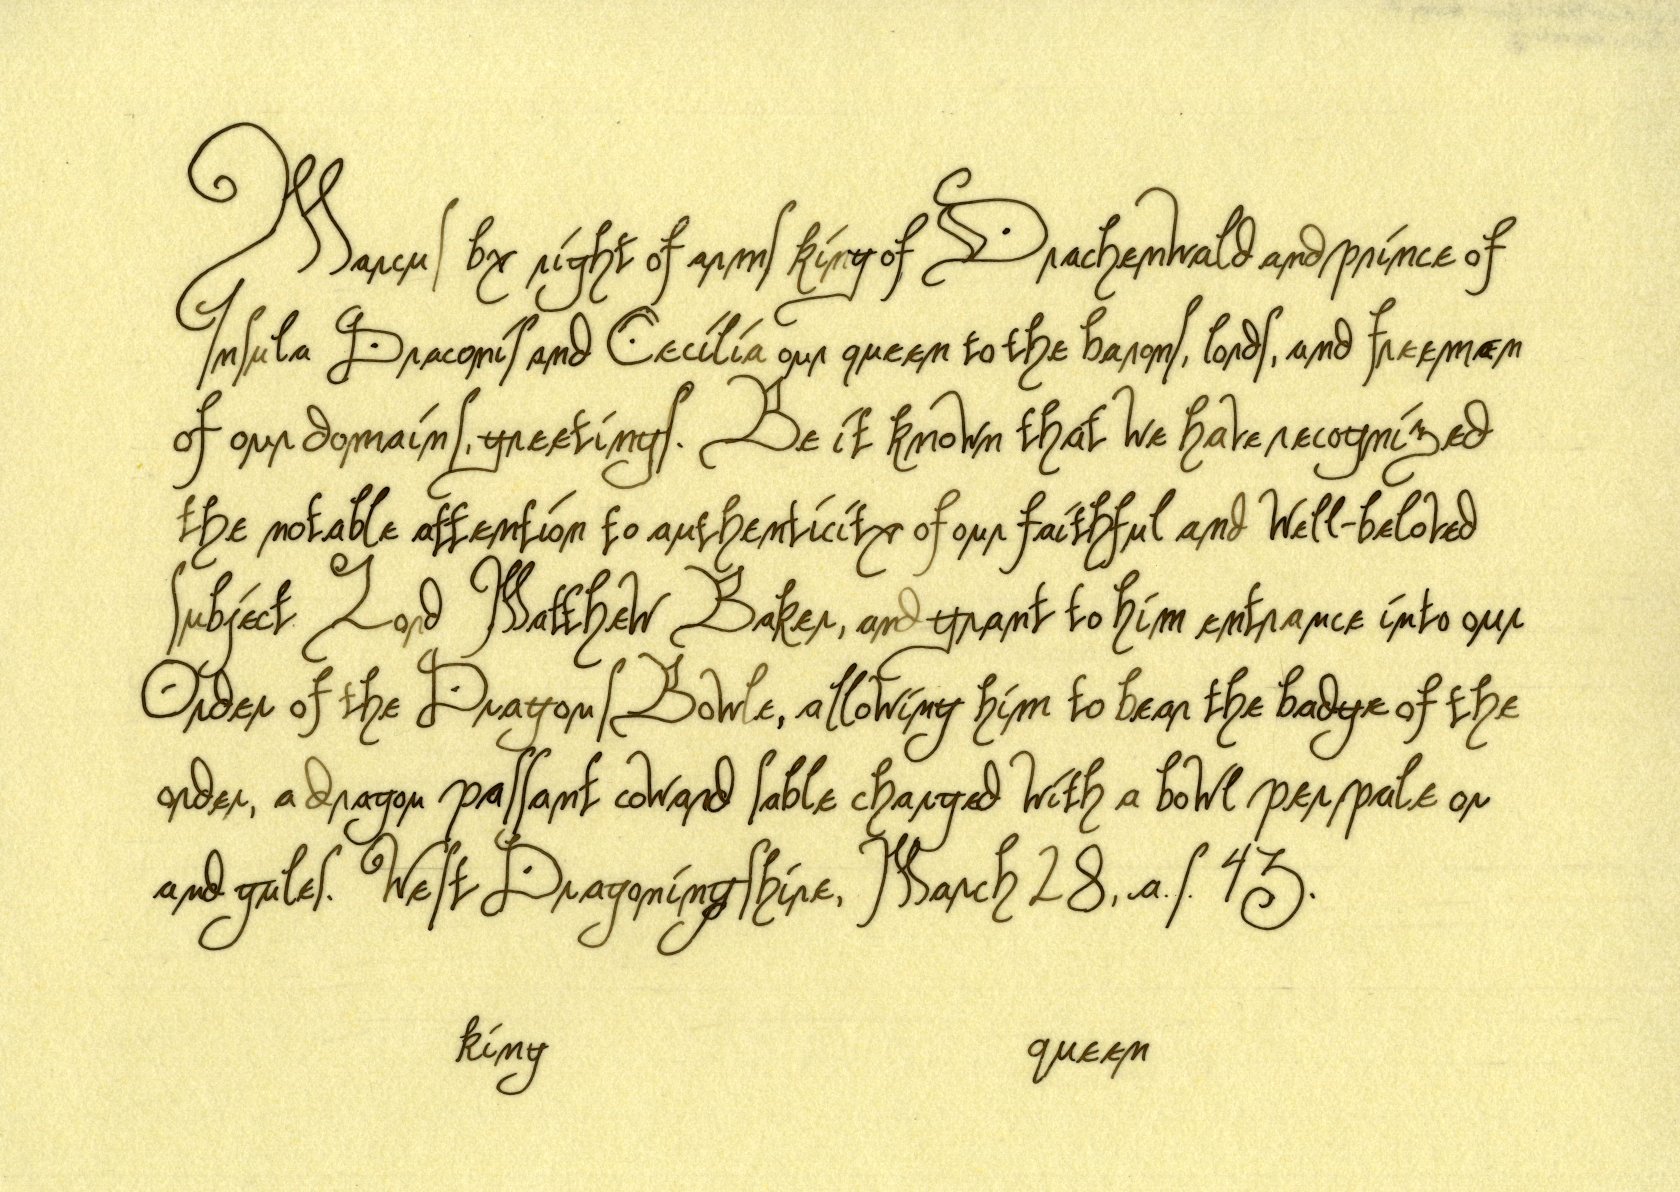 Marcus by right of arms king of Drachenwald and prince of
Insula Draconis and Cecilia our queen to the barons, lords, and freemen
of our domains, greetings. Be it known that we have recognized
the notable attention to authenticity of our faithful and well-beloved
subject Lord Matthew Baker, and grant to him entrance into our
Order of the Dragons Bowle, allowing him to bear the badge of the
order, a dragon passant coward sable charged with a bowl per pale or
and gules. West Dragoningshire, March 28, a.s. 43.
king queen